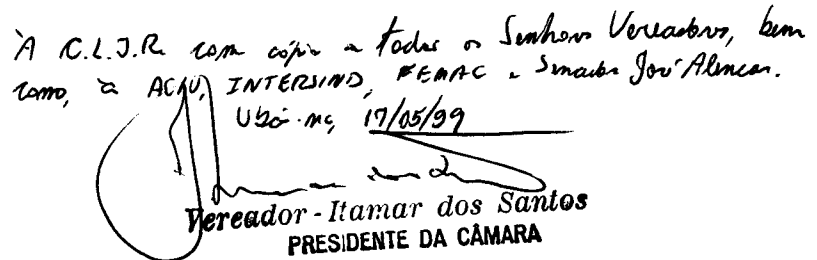 À C.L.J.R. com cópia a todos os Senhores Vereadores, bem
como, à ACAU, INTERSIND, FEMAC e Senador José Alencar.
Ubá-MG, 17/05/99
Vereador - Itamar dos Santos
PRESIDENTE DA CÂMARA